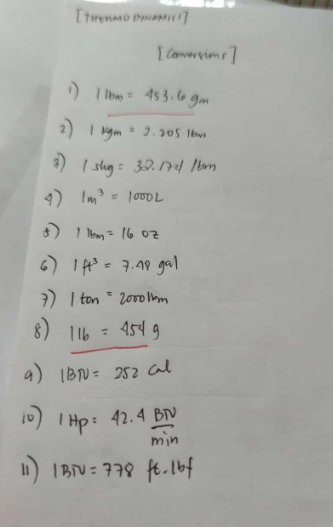 [THERMO DYNAMICS]
[Conversions]
1) 1 lbm = 453.6 gm
2) 1 kgm = 2.205 lbm
3) 1 slug = 32.174 lbm
4) 1m³ = 1000L
5) 1 lbm = 16 oz
6) 1 ft³ = 7.48 gal
7) 1 ton = 2000 lbm
8) 1 lb = 454 g
9) 1BTU = 252 Cal
10) 1 Hp = 42.4 BTU/min
11) 1BTU = 778 ft.lbf